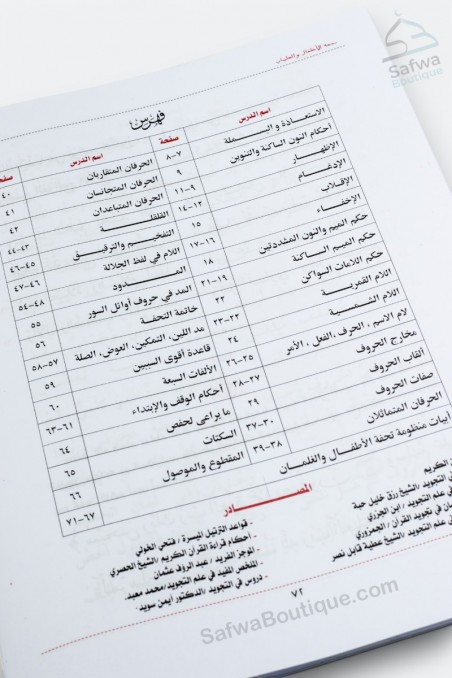 تحفة الأطفال والغلمان
Safwa
Boutique
فهرس
اسم الدرس صفحة
الاستعاذة و البسملة ٨-٧
أحكام النون الساكنة والتنوين ٩
الإظهار ١١-٩
الإدغام ١٤-١٢
الإقلاب ١٥
الإخفاء ١٧-١٦
حكم الميم والنون المشددتين ١٨
حكم الميم الساكنة ٢١-١٩
حكم اللامات السواكن ٢٢
اللام القمرية ٢٣-٢٢
اللام الشمسية ٢٤
لام الاسم ، الحرف ،الفعل ، الأمر ٢٦-٢٥
مخارج الحروف ٢٨-٢٧
ألقاب الحروف ٢٩
صفات الحروف ٣٧-٣٠
الحرفان المتماثلان ٣٩-٣٨
اسم الدرس صفحة
الحرفان المتقاربان ٤٠
الحرفان المتجانسان ٤١
الحرفان المتباعدان ٤٢
القلقلة ٤٤-٤٣
التفخيم والترقيق ٤٦-٤٥
اللام في لفظ الجلالة ٤٧-٤٦
المدود ٥٤-٤٨
المد في حروف أوائل السور ٥٥
خاتمة التحفة ٥٦
مد اللين، التمكين، العوض، الصلة ٥٨-٥٧
قاعدة أقوى السببين ٥٩
الألفات السبعة ٦٠
أحكام الوقف والإبتداء ٦٣-٦١
ما يراعى لحفص ٦٤
السكتات ٦٥
المقطوع والموصول ٦٦
أبيات منظومة تحفة الأطفال والغلمان ٧١-٦٧
المصادر
الكريم
في التجويد /الشيخ رزق خليل حبة
في علم التجويد / ابن الجزري
في تجويد القرآن / الجمزوري
في علم التجويد /الشيخ عطية قابل نصر
- قواعد الترتيل الميسرة / فتحي الخولي
- أحكام قراءة القرآن الكريم /الشيخ الحصري
- الموجز الفريد / عبد الرؤف عثمان
- الملخص المفيد في علم التجويد /محمد معبد.
- دروس في التجويد /الدكتور أيمن سويد.
٧٢
SafwaBoutique.com